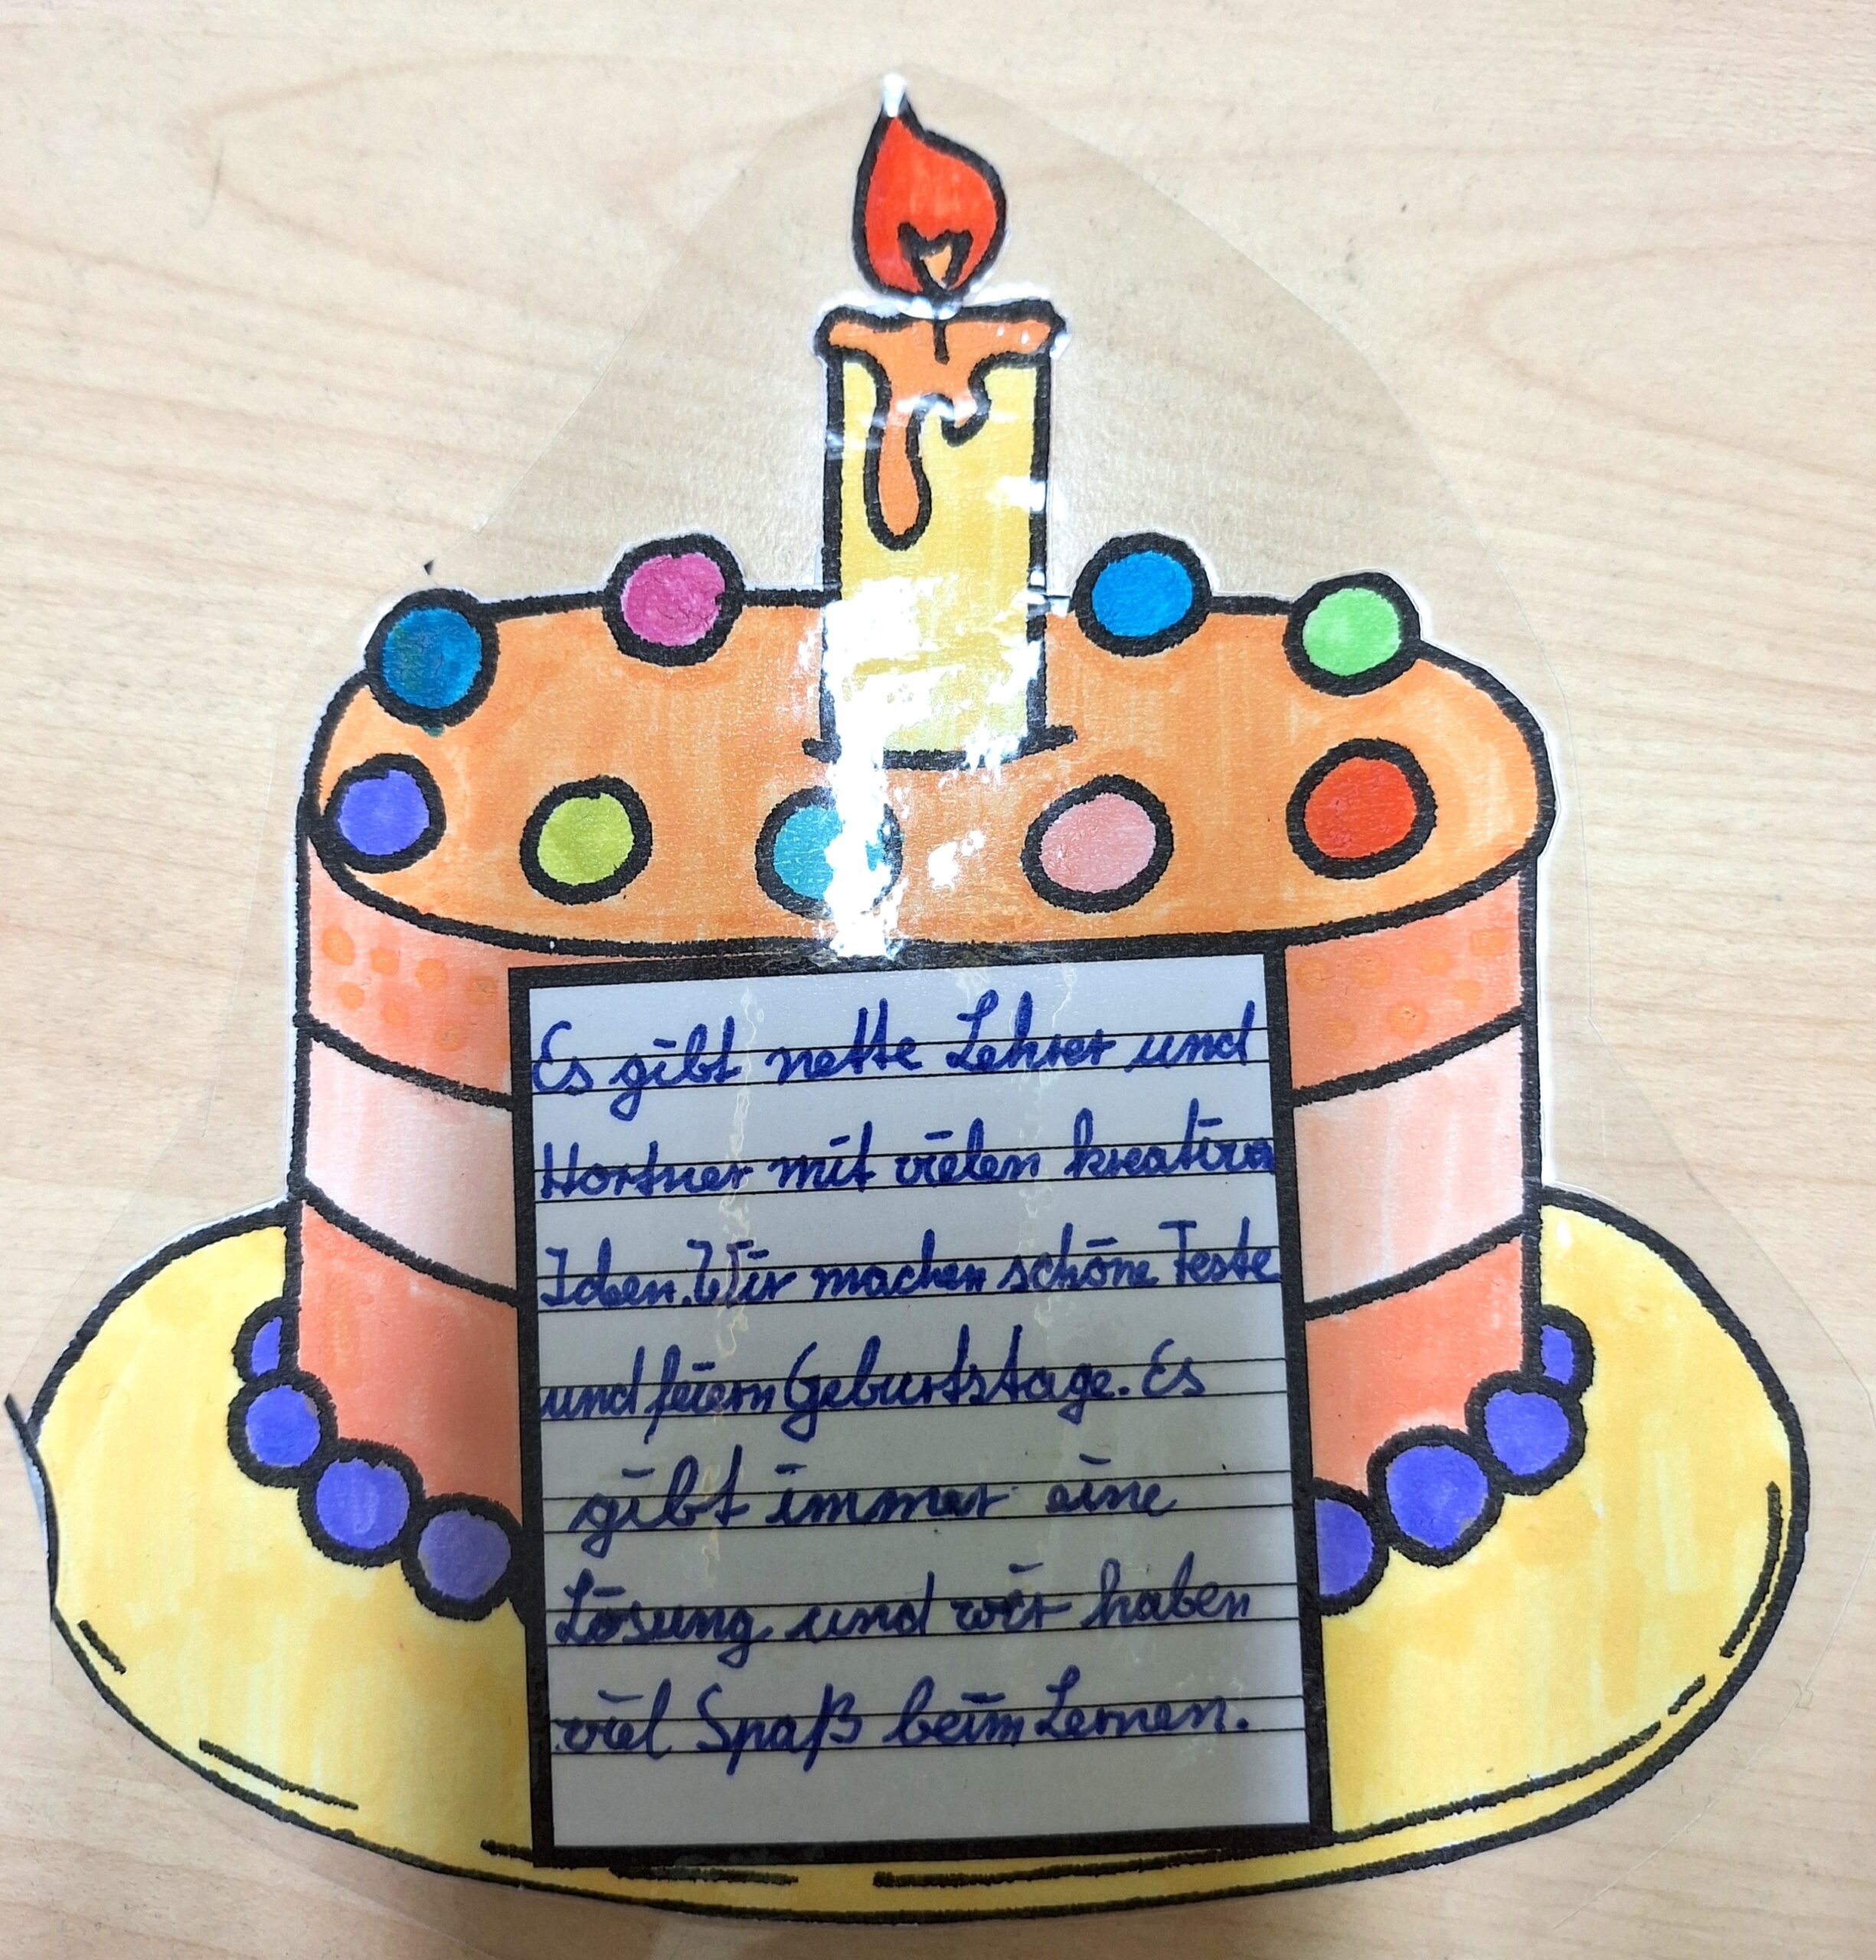 Es gibt nette Lehrer und
Hortner mit vielen kreativen
Ideen. Wir machen schöne Feste
und feiern Geburtstage. Es
gibt immer eine
Lösung und wir haben
viel Spaß beim Lernen.